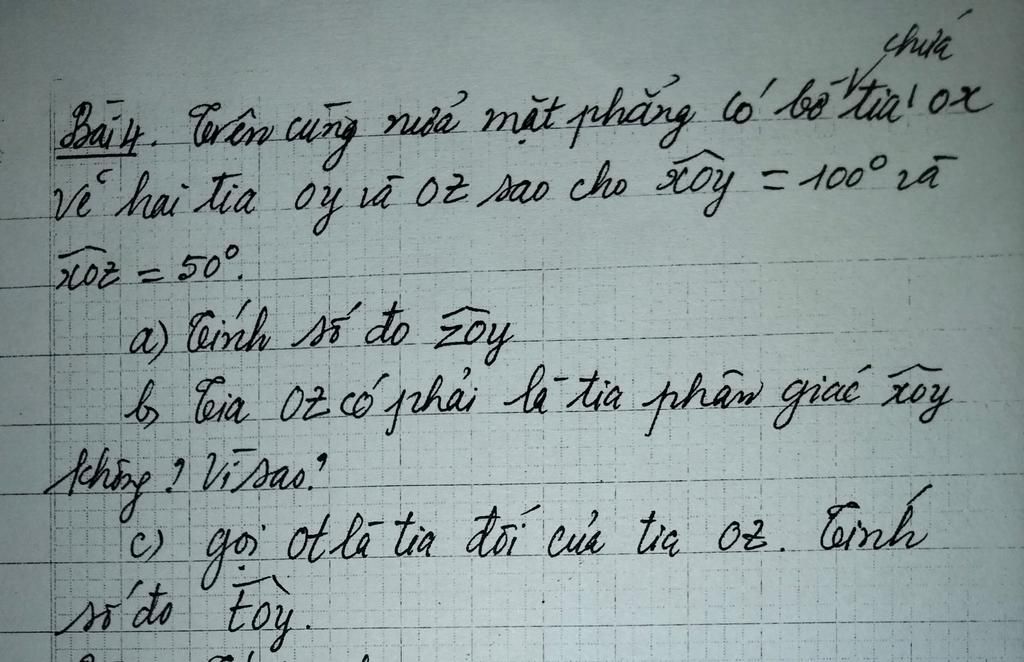 chứa
Bài 4. Trên cùng nửa mặt phẳng có bờ tia Ox
vẽ hai tia Oy và Oz sao cho xOy = 100° và
xOz = 50°.
a) Tính số đo zOy
b) Tia Oz có phải là tia phân giác xOy
không? Vì sao?
c) gọi Ot là tia đối của tia Oz. Tính
số đo tOy.